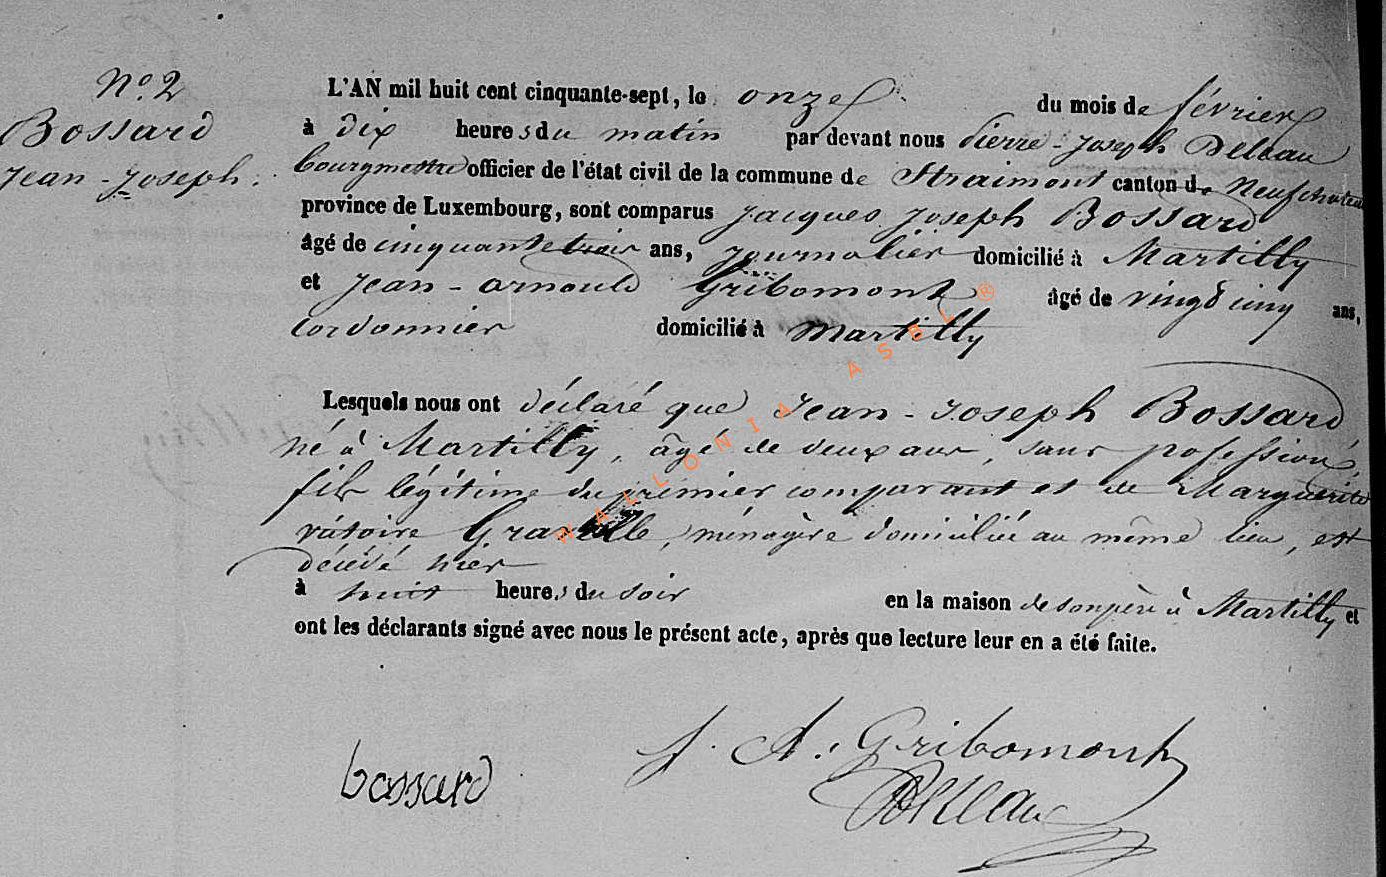 No. 2
Bossard
Jean-Joseph.
L'AN mil huit cent cinquante-sept, le onze du mois de février
à dix heures du matin par devant nous Pierre-Joseph Deleau
bourgmestre officier de l'état civil de la commune de Straimont canton de Neufchateau
province de Luxembourg, sont comparus Jacques Joseph Bossard
âgé de cinquante trois ans, journalier domicilié à Martilly
et Jean-Arnould Gribomont âgé de vingt cinq ans,
cordonnier domicilié à Martilly
Lesquels nous ont déclaré que Jean-Joseph Bossard
né à Martilly, âgé de deux ans, sans profession,
fils légitime du premier comparant et de Marguerite
victoire, ménagère domiciliée au même lieu, est
décédé hier
à huit heures du soir en la maison de son père à Martilly et
ont les déclarants signé avec nous le présent acte, après que lecture leur en a été faite.
bossard
J. A. Gribomont
Deleau
WALLONIA ASBL ®